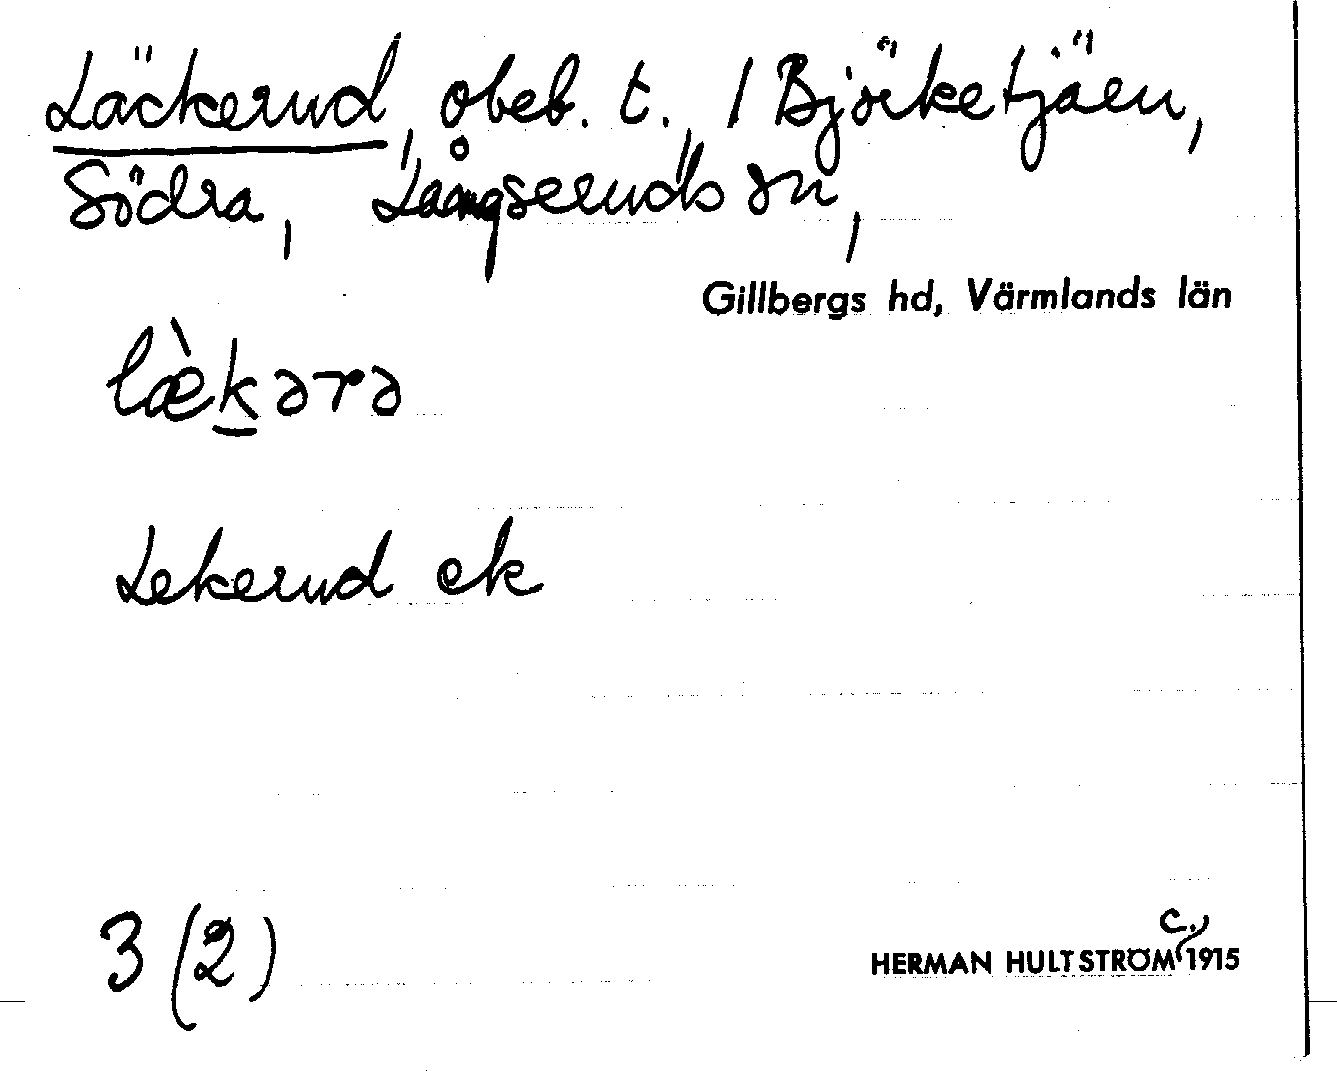 Läckerud, obeb. t. 1 Björketjäen,
Södra, Långseruds sn,
Gillbergs hd, Värmlands län
læ̀k̠ərə
Lekerud ek
3 (2)
HERMAN HULTSTRÖM c. 1915